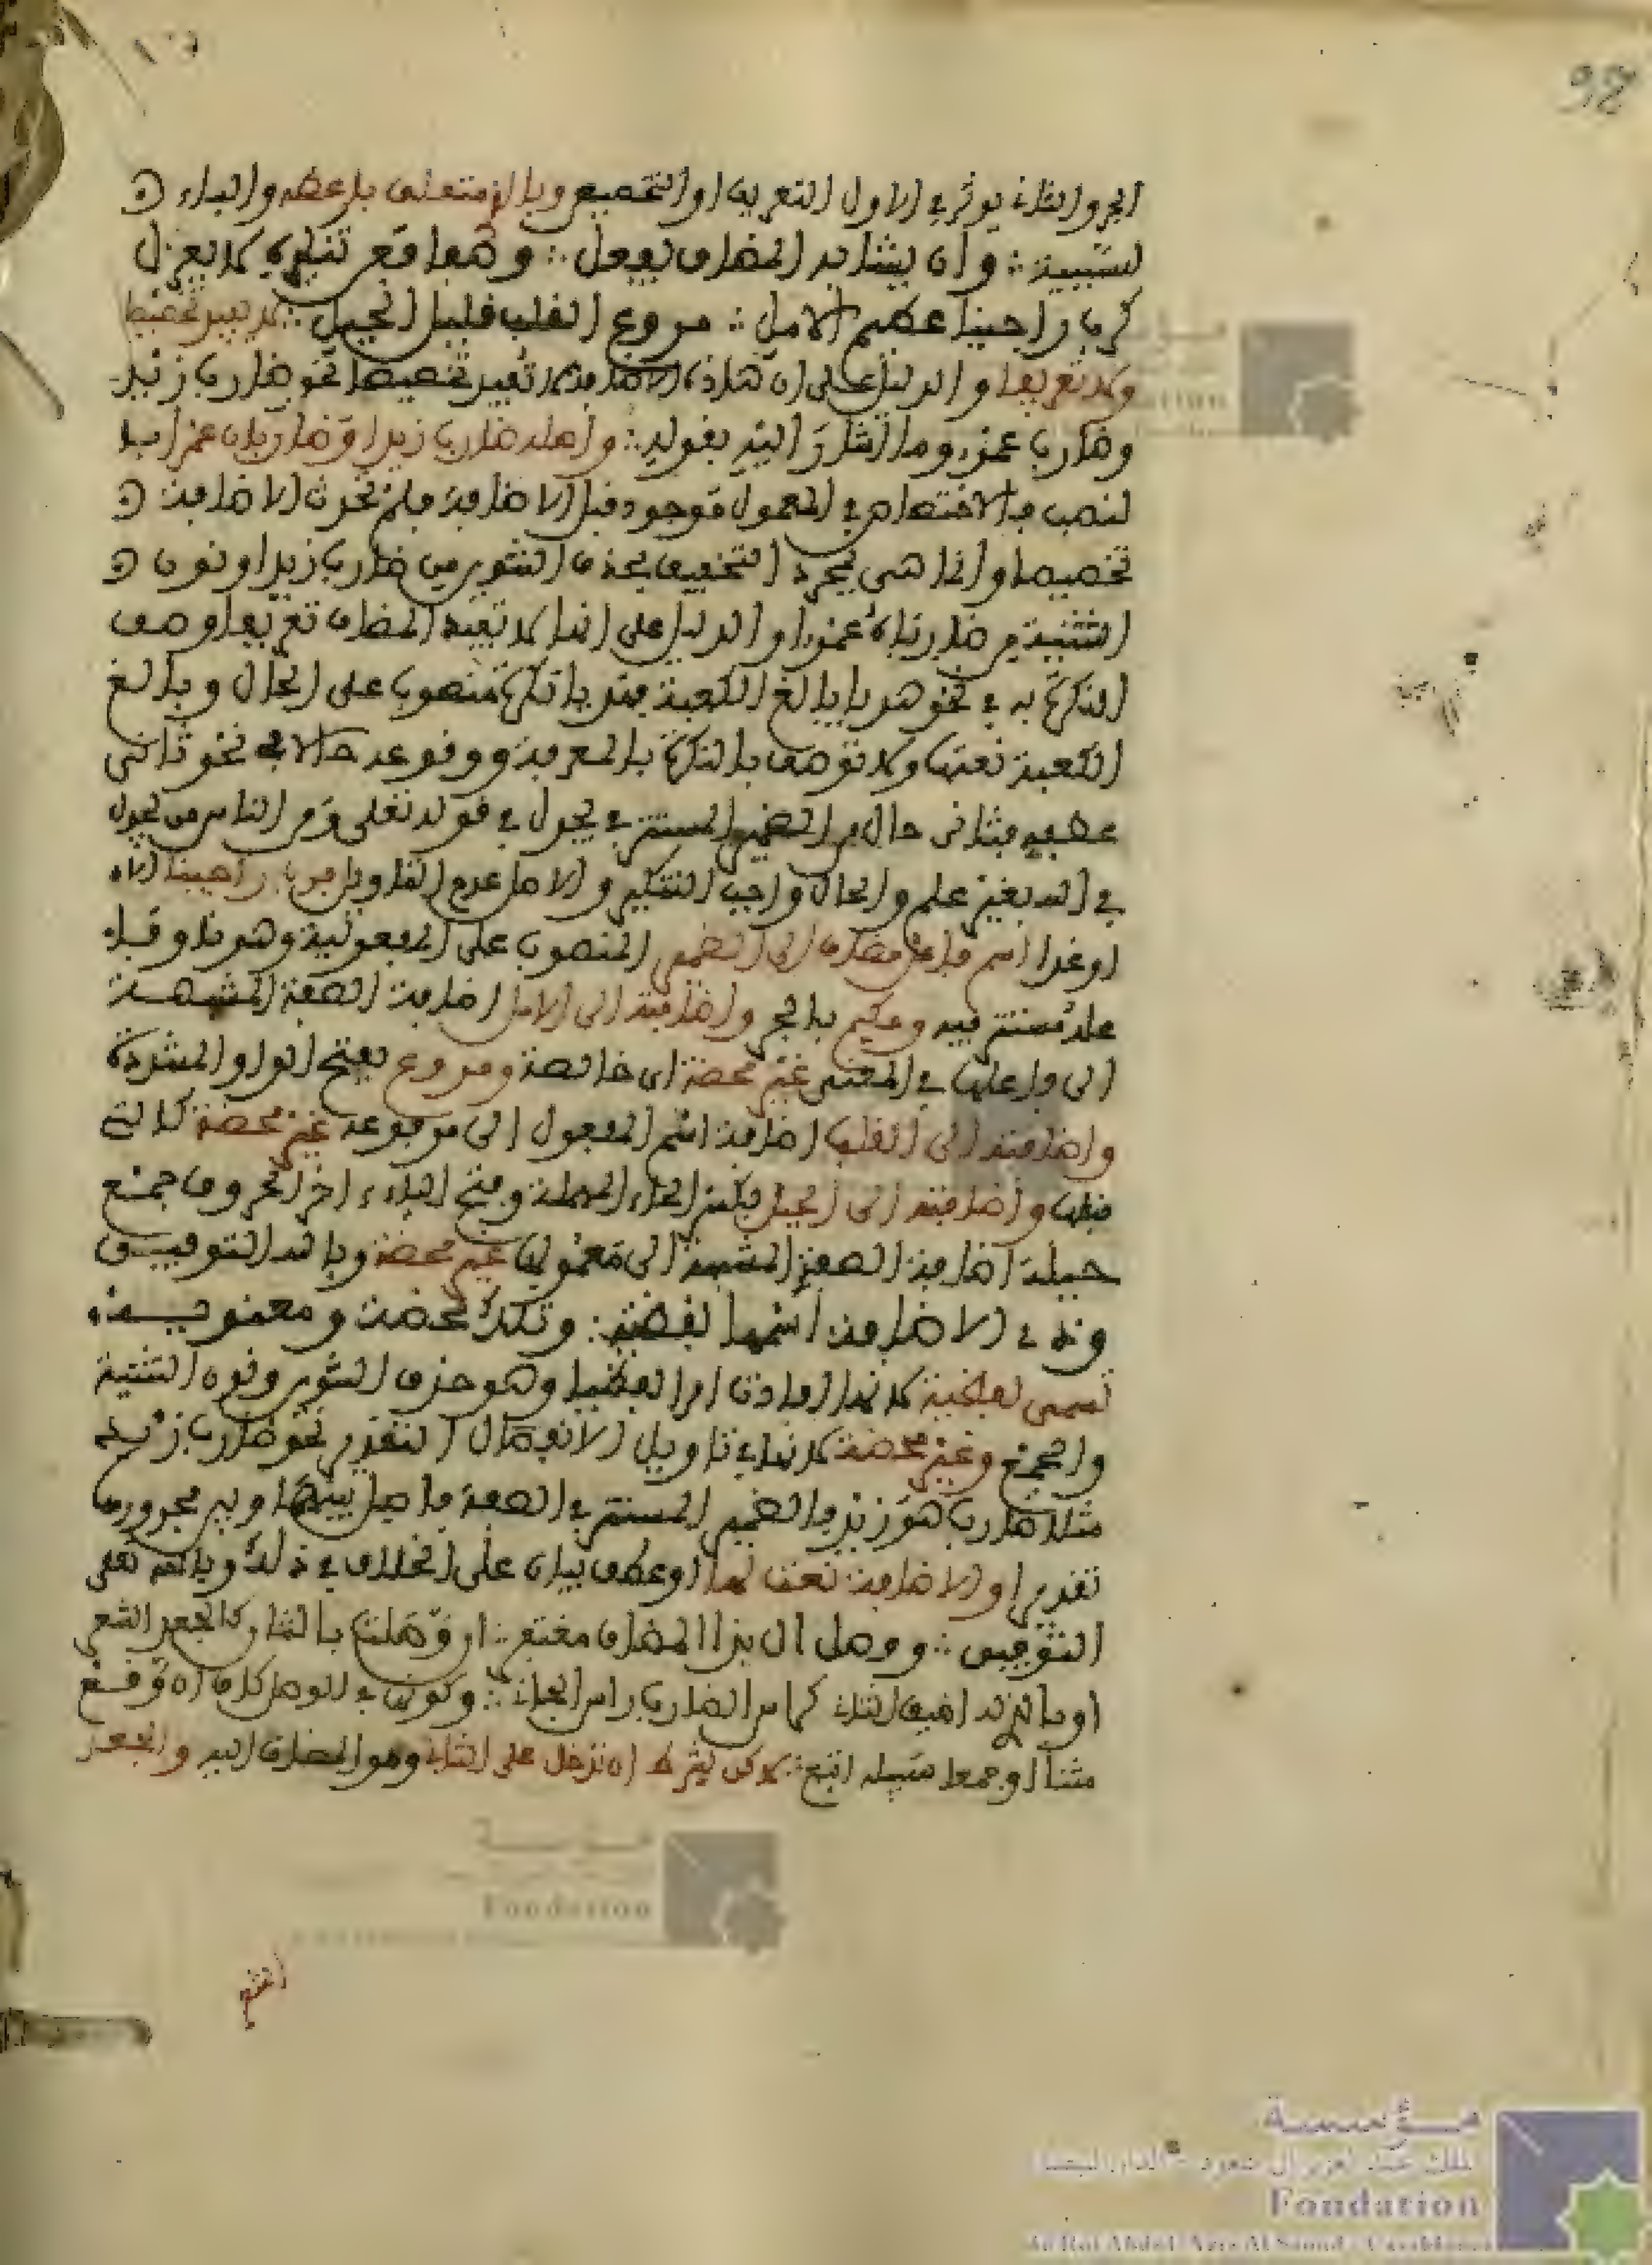 98
الجر والثاني يوثر في الاول التعريف او التخصيص وبالذي متعلق باعطه والباء
لسببية ∴ وان يشابه المضاف يفعل ∴ وصفا فعن تنكيره لا يعزل
كرب راجينا عظيم الامل ∴ مروع القلب قليل الحيل ∴ لا يفيد تخصيصا
ولا تعريفا والدليل على ان هاذه الاضافة لا تفيد تخصيصا نحو ضارب زيد
وضاربا عمرو وما اشار اليه بقوله ∴ واصله ضارب زيدا وضاربان عمرا با
لنصب فالاختصاص في المعمول موجود قبل الاضافة فلم تحدث الاضافة
تخصيصا وانما هي لمجرد التخفيف بحذف التنوين من ضارب زيدا ونون
التثنية من ضاربان عمرا والدليل على انها لا تفيد المضاف تعريفا وصف
النكرة به في نحو هديا بالغ الكعبة فهديا نكرة منصوب على الحال وبالغ
الكعبة نعتها ولا توصف النكرة بالمعرفة ووقوعه حالا في نحو ثاني
عطفه فثاني حال من الضمير المستتر في يجادل في قوله تعلى ومن الناس من يجادل
في الله بغير علم والحال واجب التنكير والاصل عدم التاويل فرب راجينا
اسم فاعل مضاف الى الضمير المنصوب على المفعولية وهو نا وفا
عله مستتر فيه وعظيم بالجر واضافته الى الامل اضافة الصفة المشبهة
الى فاعلها في المعنى غير محضة اي خالصة ومروع بفتح الواو المشددة
واضافته الى القلب اضافة اسم المفعول الى مرفوعه غير محضة كالتي
قبلها واضافته الى الحيل بكسر الحاء المهملة وفتح الياء اخر الحروف جمع
حيلة اضافة الصفة المشبهة الى معمولها غير محضة وبالله التوفيق
وذي الاضافة اسمها لفظية ∴ وتلك محضة ومعنوية
تسمى لفظية لانها افادت امرا لفظيا وهو حذف التنوين ونون التثنية
والجمع وغير محضة لانها في تاويل الانفصال التقدير نحو ضارب زيد
مثلا ضارب هو زيد فالضمير المستتر في الصفة فاصل بينها وبين مجرورها
تقديرا والاضافة نعت لها او عطف بيان على الخلاف في ذلك وبالله تعلى
التوفيق ∴ ووصل ال بذا المضاف مغتفر ∴ ان وصلت بالثان كالجعد الشعر
او بالذي له اضيف الثاني كما من الضارب راس الجاني ∴ وكونها في الوصف كاف ان وقع
مثنا او جمعا سبيله اتبع ∴ لاكن بشرط ان تدخل على الثاني وهو المضاف اليه والجعد
مؤسسة
الملك عبد العزيز آل سعود - الدار البيضاء
Fondation
du Roi Abdul-Aziz Al Saoud - Casablanca
Fondation